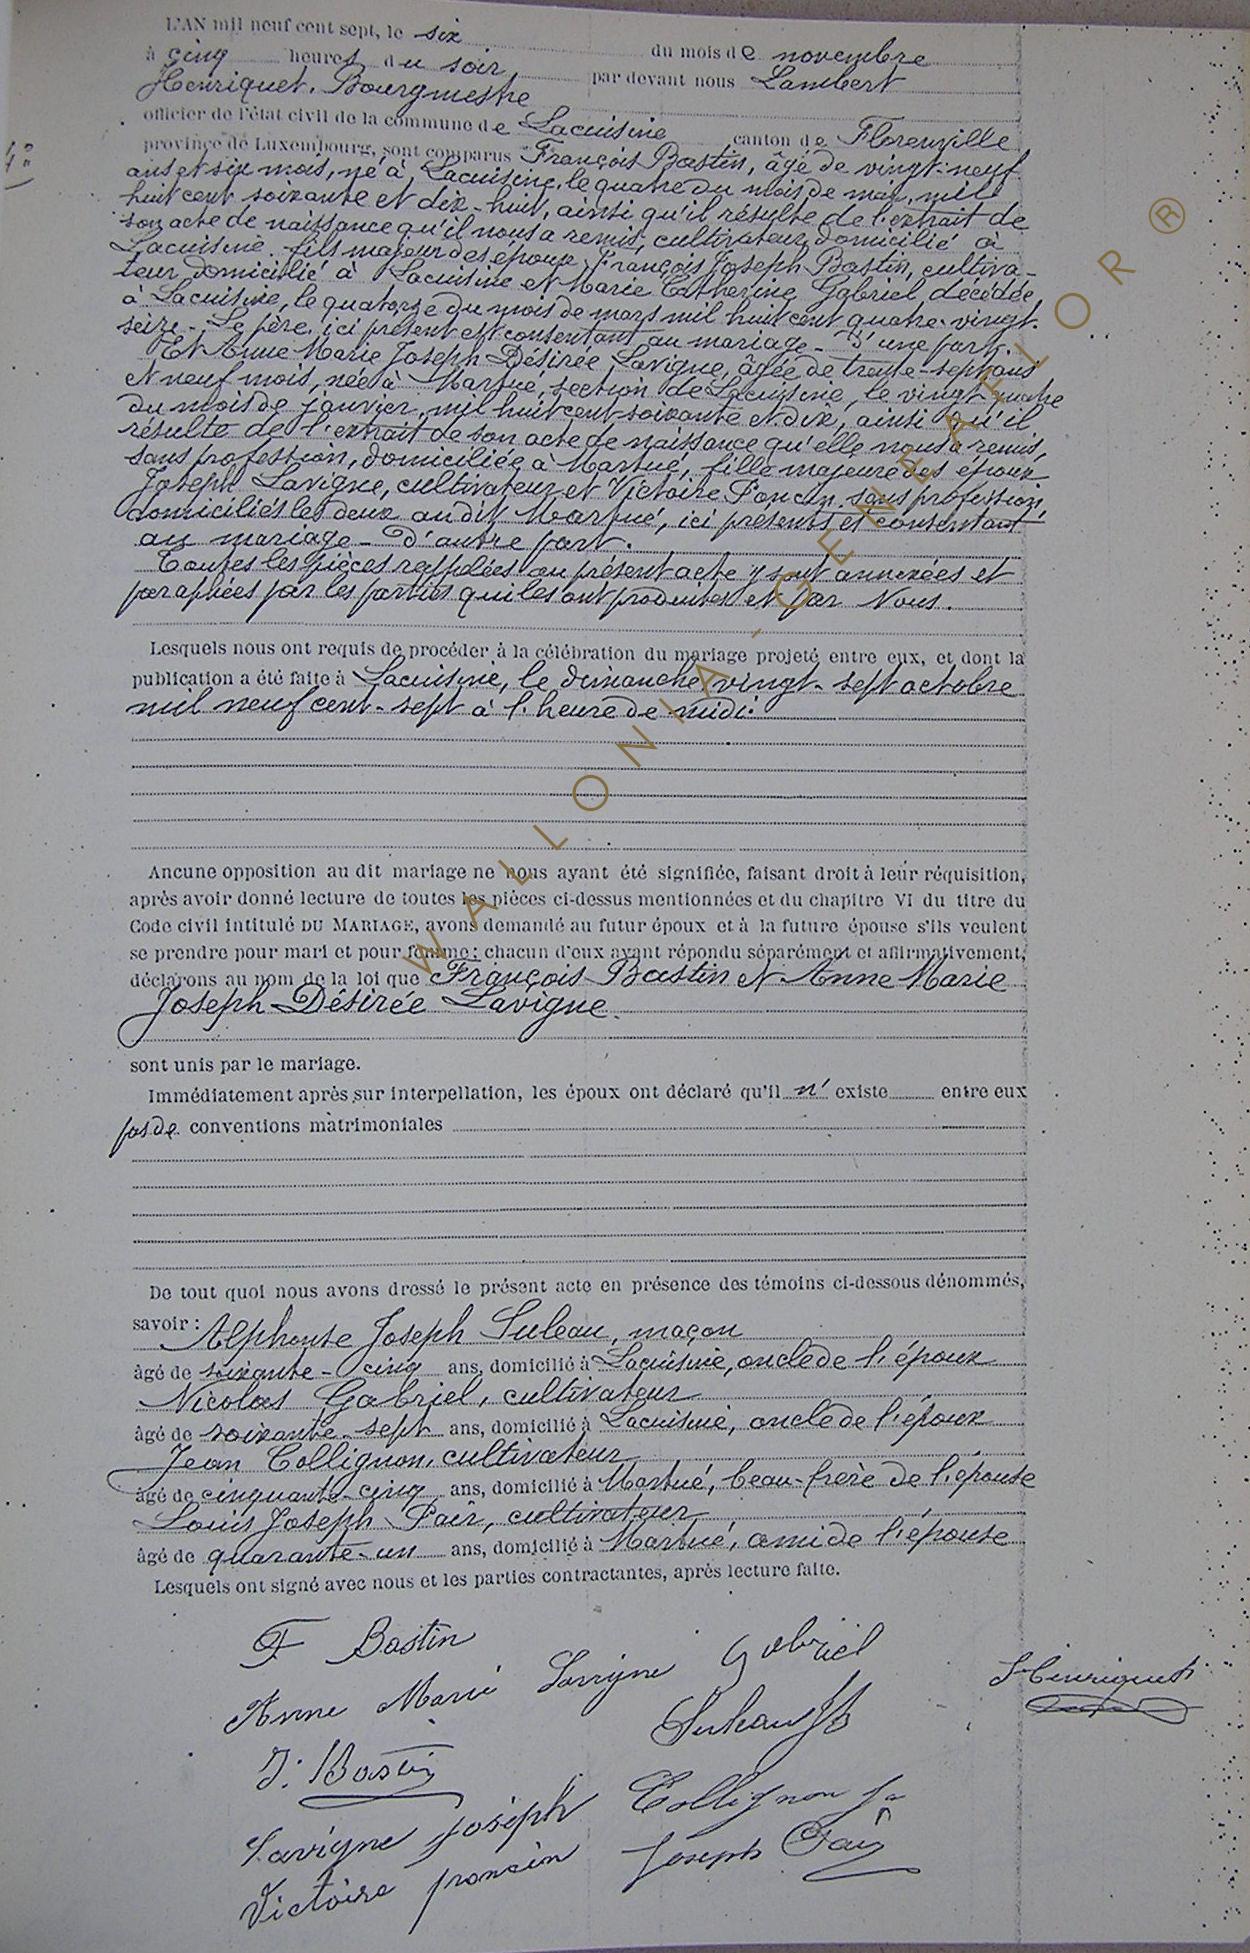 L'AN mil neuf cent sept, le six du mois de novembre
à cinq heures du soir, par devant nous Lambert
Henriquet, Bourgmestre
officier de l'état civil de la commune de Lacuisine canton de Florenville
province de Luxembourg, sont comparus François Bastin, âgé de vingt-neuf
ans et six mois, né à Lacuisine, le quatre du mois de mai, mil
huit cent soixante et dix-huit, ainsi qu'il résulte de l'extrait de
son acte de naissance qu'il nous a remis, cultivateur, domicilié à
Lacuisine. fils majeur des époux François Joseph Bastin, cultiva-
teur, domicilié à Lacuisine et Marie Catherine Gabriel, décédée
à Lacuisine, le quatorze du mois de mars mil huit cent quatre-vingt-
seize. Le père, ici présent et consentant au mariage - D'une part.
Et Anne Marie Joseph Désirée Lavigne, âgée de trente-sept ans
et neuf mois, née à Martué, section de Lacuisine, le vingt quatre
du mois de janvier, mil huit cent soixante et dix, ainsi qu'il
résulte de l'extrait de son acte de naissance qu'elle nous a remis,
sans profession, domiciliée à Martué, fille majeure des époux
Joseph Lavigne, cultivateur et Victoire Poncin, sans profession,
domiciliés les deux au dit Martué, ici présents et consentant
au mariage - D'autre part.
Toutes les pièces rappelées au présent acte y sont annexées et
paraphées par les parties qui les ont produites et par Nous.
Lesquels nous ont requis de procéder à la célébration du mariage projeté entre eux, et dont la
publication a été faite à Lacuisine, le dimanche vingt-sept octobre
mil neuf cent-sept à l'heure de midi.
Ancune opposition au dit mariage ne nous ayant été signifiée, faisant droit à leur réquisition,
après avoir donné lecture de toutes les pièces ci-dessus mentionnées et du chapitre VI du titre du
Code civil intitulé DU MARIAGE, avons demandé au futur époux et à la future épouse s'ils veulent
se prendre pour mari et pour femme ; chacun d'eux ayant répondu séparément et affirmativement,
déclarons au nom de la loi que François Bastin et Anne Marie
Joseph Désirée Lavigne.
sont unis par le mariage.
Immédiatement après sur interpellation, les époux ont déclaré qu'il n' existe entre eux
pas de conventions matrimoniales
De tout quoi nous avons dressé le présent acte en présence des témoins ci-dessous dénommés,
savoir : Alphonse Joseph Suleau, maçon
âgé de soixante-cinq ans, domicilié à Lacuisine, oncle de l'époux
Nicolas Gabriel, cultivateur
âgé de soixante-sept ans, domicilié à Lacuisine, oncle de l'époux
Jean Collignon, cultivateur
âgé de cinquante-cinq ans, domicilié à Martué, beau-frère de l'épouse
Louis Joseph Pair, cultivateur
âgé de quarante-un ans, domicilié à Martué, ami de l'épouse
Lesquels ont signé avec nous et les parties contractantes, après lecture faite.
F Bastin
Gabriel
Anne Marie Lavigne
Henriquet
Suleau
J. Bastin
Collignon Jn
Lavigne joséph
Joseph Pair
Victoire poncin
WALLONIA - GENEAFLOR ®